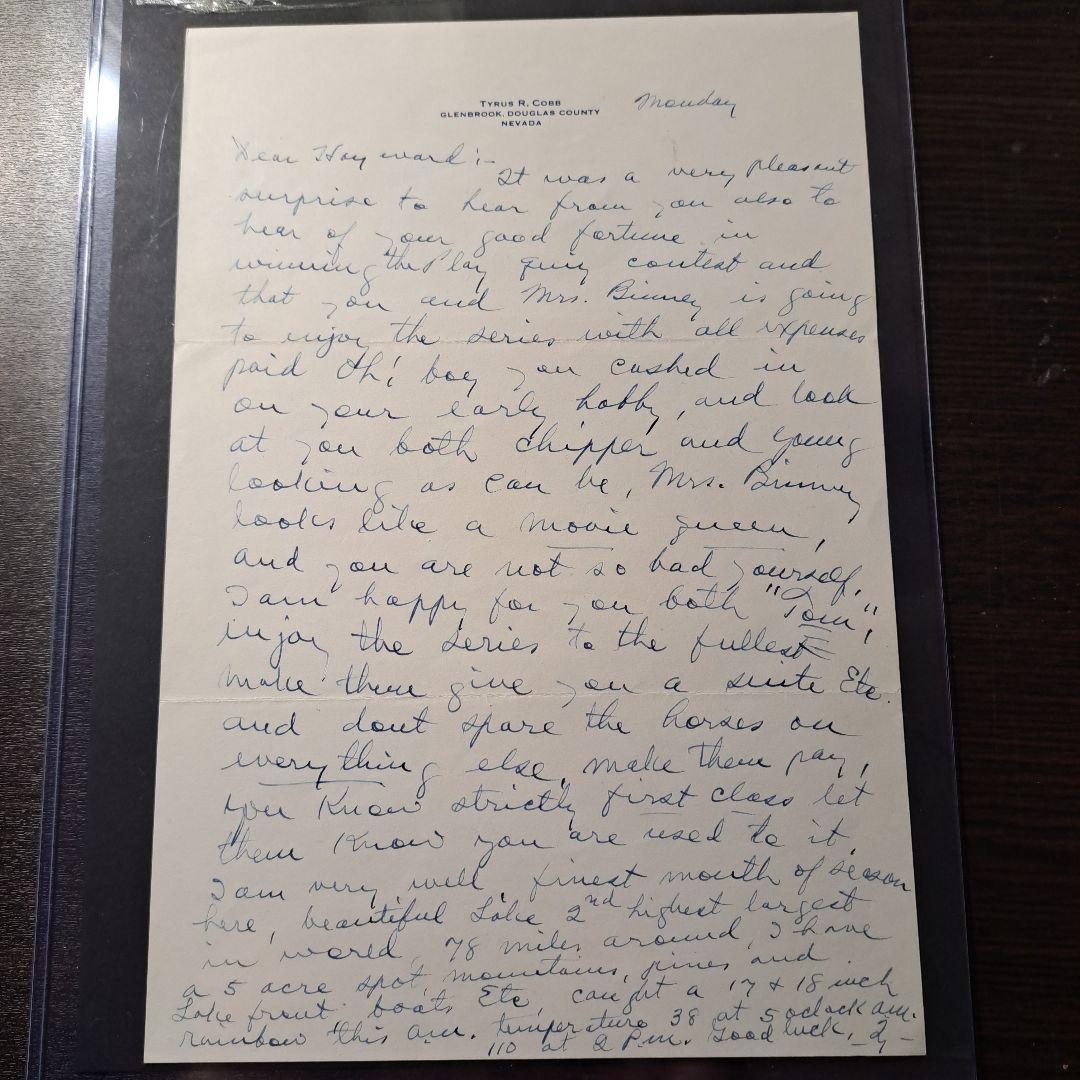 TYRUS R. COBB
GLENBROOK, DOUGLAS COUNTY
NEVADA
Monday
Dear Hayward:-
It was a very pleasant
surprise to hear from you also to
hear of your good fortune in
winning the Play quiz contest and
that you and Mrs. Binney is going
to enjoy the series with all expenses
paid Oh! boy you cashed in
on your early hobby, and look
at you both chipper and young
looking as can be, Mrs. Binney
looks like a movie queen,
and you are not so bad yourself.
I am happy for you both "Tom",
injoy the series to the fullest
make them give you a suite Etc.
and dont spare the horses on
everything else, make them pay,
you Know strictly first class let
them Know you are used to it.
I am very well, finest month of season
here, beautiful Lake 2nd highest largest
in world, 78 miles around, I have
a 5 acre spot, mountains, pines and
Lake front boats Etc, caught a 17 & 18 inch
rainbow this am. temperature 38 at 5 oclock am.
110 at 2 P.m. Good luck,